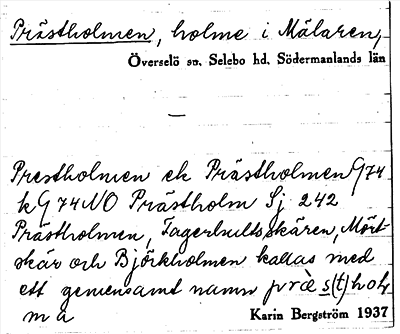 Prästholmen, holme i Mälaren,
Överselö sn. Selebo hd. Södermanlands län
—
Prestholmen ek Prästholmen G74
k G 74 NO Prästholm Sj 242
Prästholmen, Fagerhultsskären, Mört-
skär och Björkholmen kallas med
ett gemensamt namn præ̀s(t)hol-
ma
Karin Bergström 1937